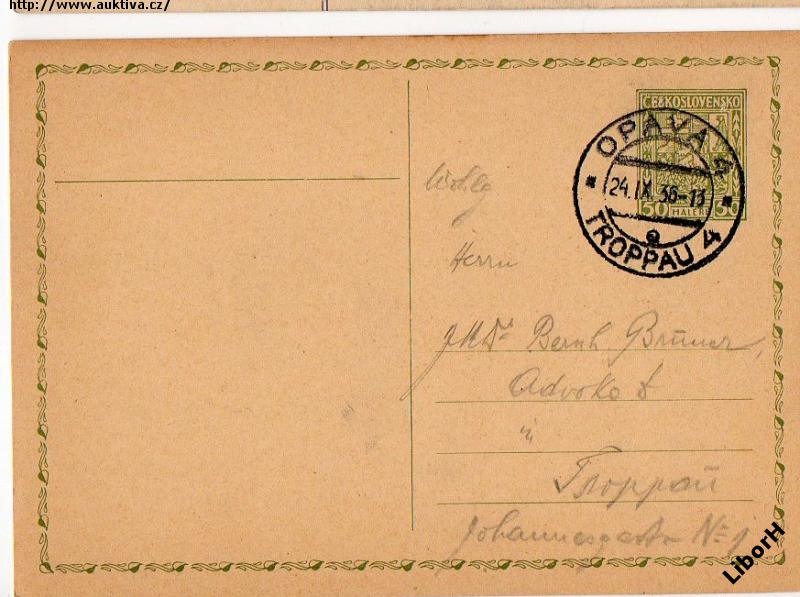 http://www.auktiva.cz/
ČESKOSLOVENSKO
50 HALÉŘŮ 50
OPAVA 4
24.IX.36-13
TROPPAU 4
Herrn
JUDr Bernh. Brüner,
Advokat
in
Troppau
Johannesgasse No 1
LiborH